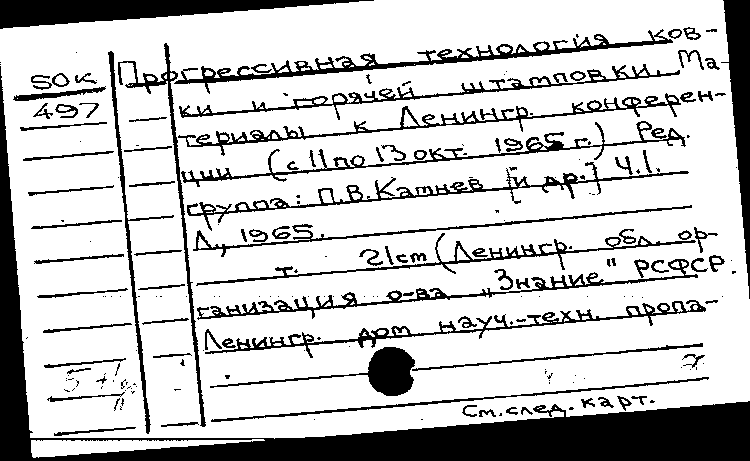 SOK
497
Прогрессивная технология ков-
ки и горячей штамповки. Ма-
териалы к Ленингр. конферен-
ции (с 11 по 13 окт. 1965 г.) Ред.
группа: П.В.Камнев [и др.] Ч.1.
Л., 1965.
т. 21cm (Ленингр. обл. ор-
ганизация о-ва „Знание" РСФСР.
Ленингр. дом науч.-техн. пропа-
См.след.карт.